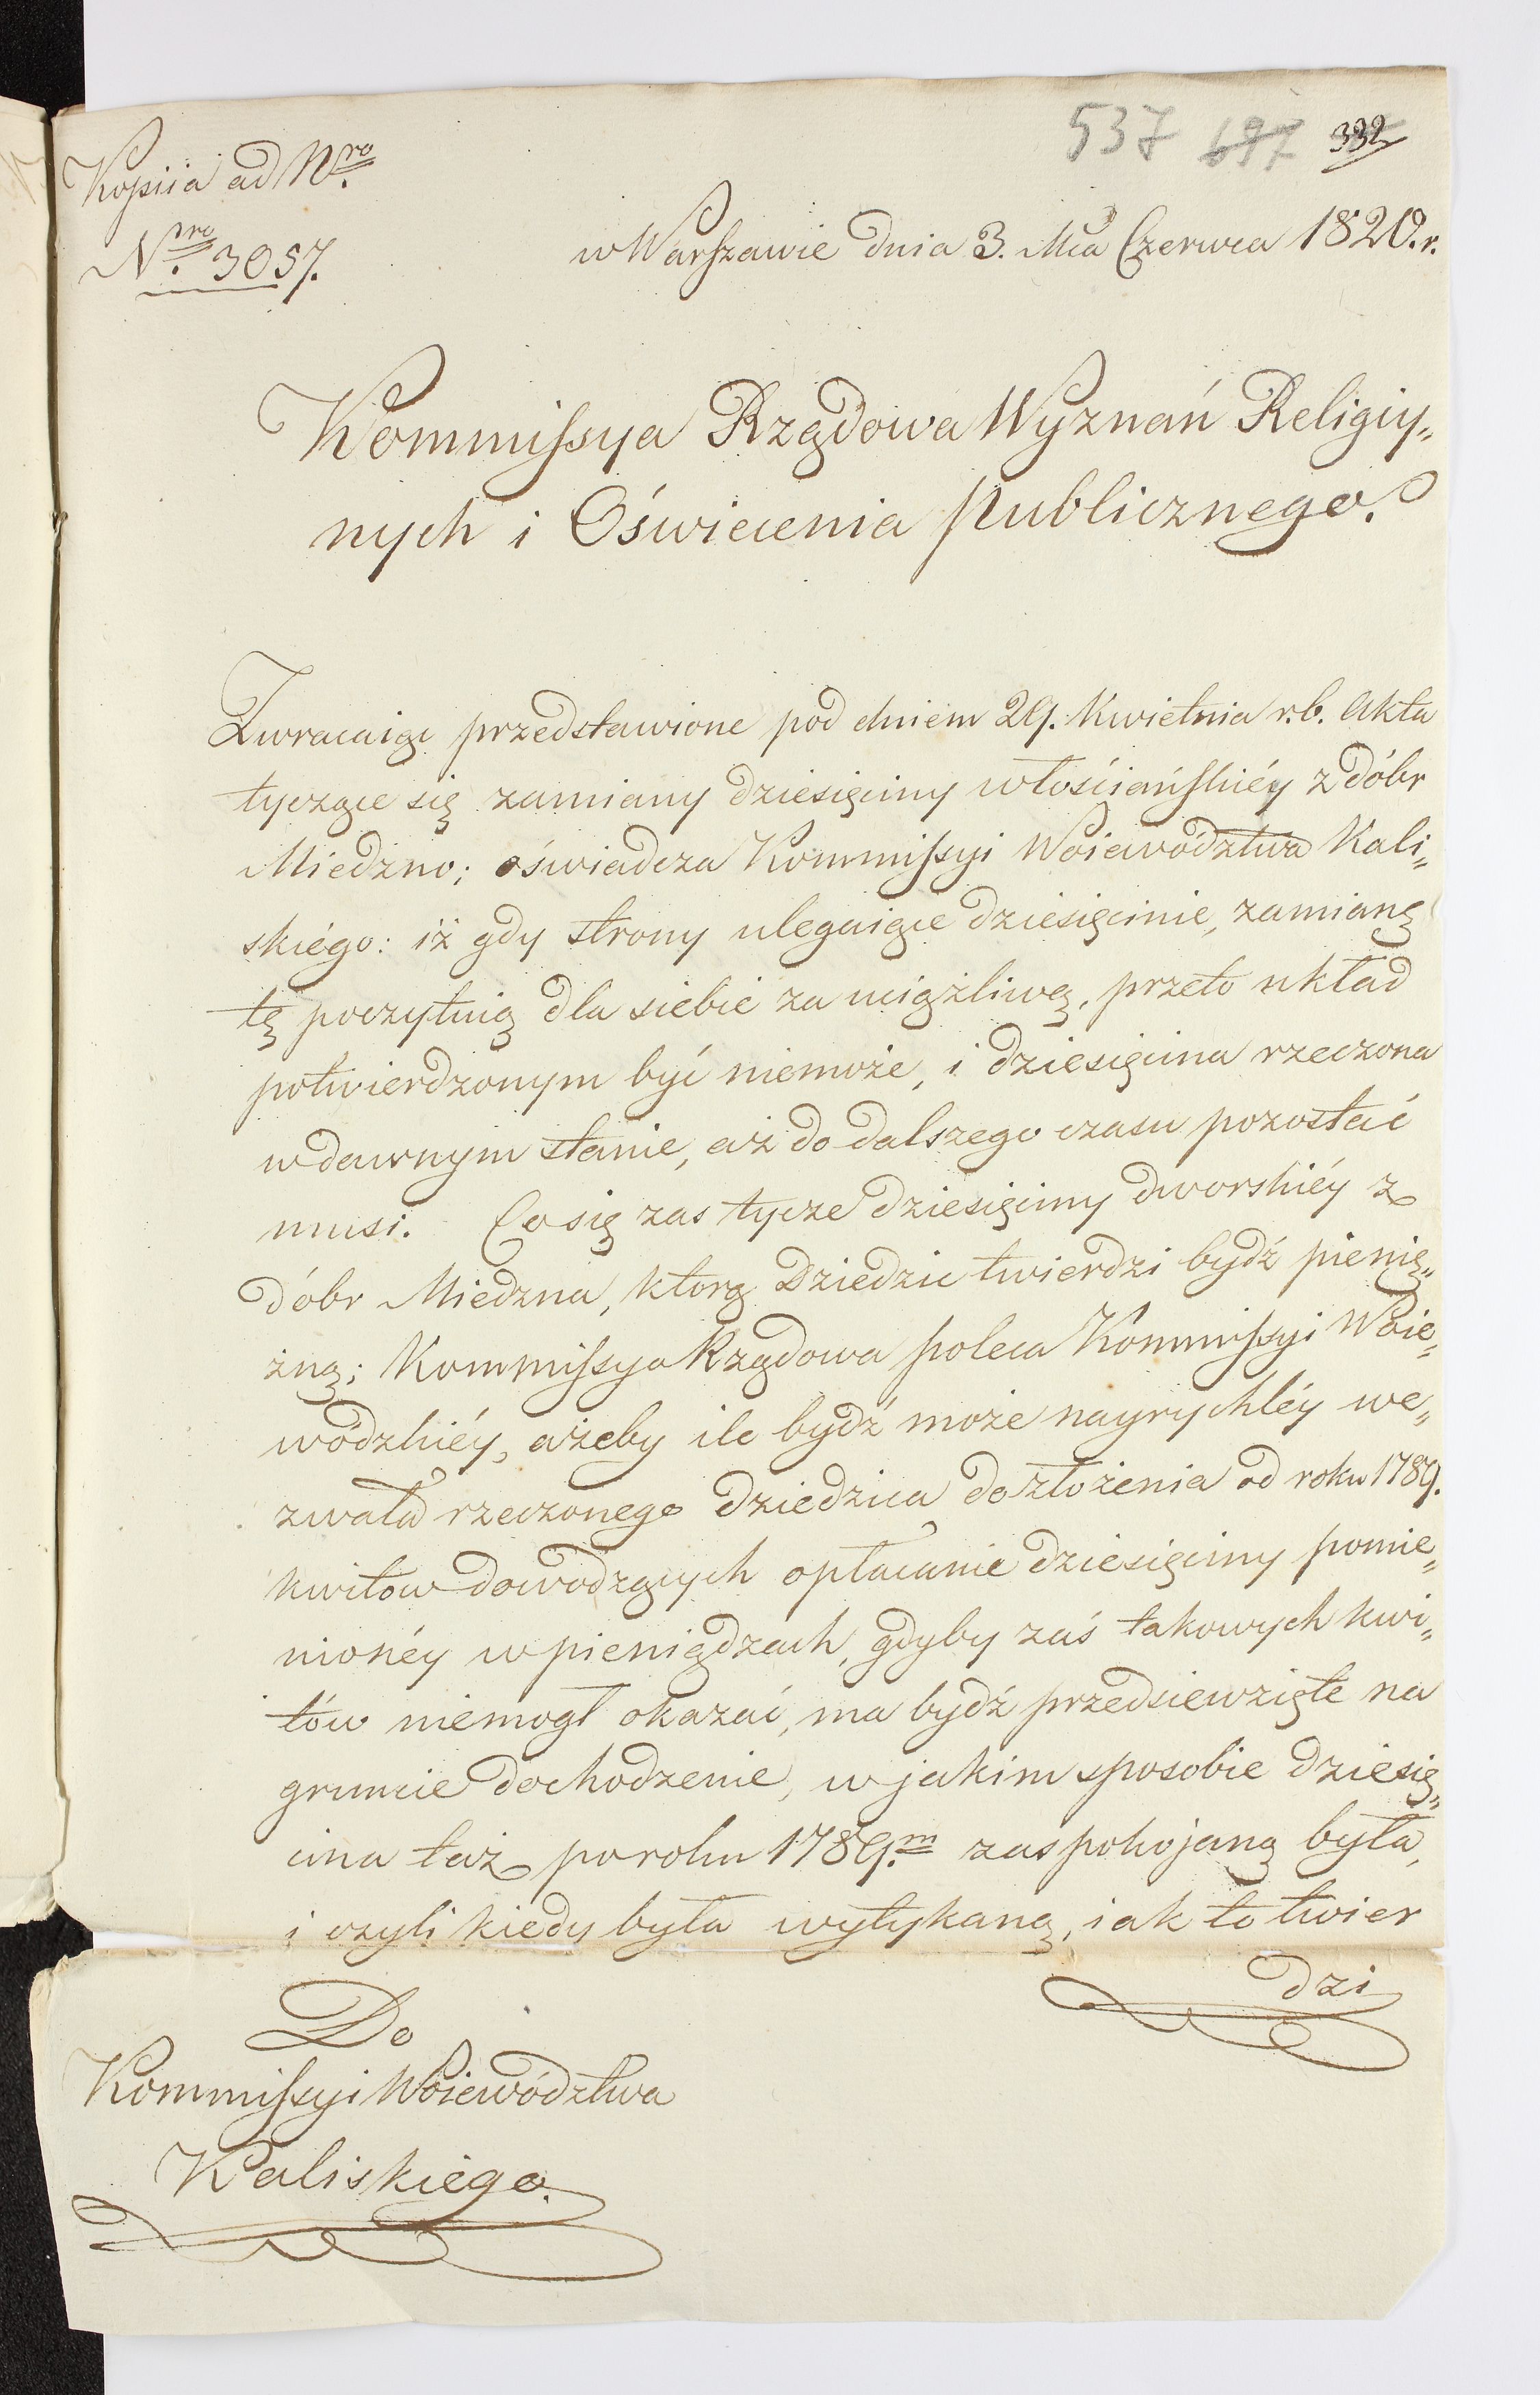 537 697 332
Kopiia ad Nro.
Nro. 3057.
w Warszawie dnia 3. Mca Czerwca 1820. r.
Kommissya Rządowa Wyznań Religiy„
nych i Oświecenia Publicznego.
Zwracaiąc przedstawione pod dniem 29. Kwietnia r. b. Akta
tyczące się zamiany dziesięciny włościańskiéy z dóbr
Miedzno; oświadcza Kommissyi Woiewództwa Kali„
skiégo: iż gdy strony ulegaiące dziesięcinie, zamianę
tę poczytuią dla siebie za uciążliwą, przeto układ
potwierdzonym być niemoże, i dziesięcina rzeczona
w dawnym stanie, aż do dalszego czasu pozostać
musi. Co się zas tycze dziesięciny dworskiéy z
dóbr Miedzna, ktorą Dziedzic twierdzi bydź pienię„
żną; Kommissya Rządowa poleca Kommissyi Woie„
wódzkiéy, ażeby ile bydź może nayrychléy we„
zwała rzeczonego dziedzica do złożenia od roku 1789.
kwitow dowodzących opłacanie dziesięciny pomie„
nionéy w pieniądzach, gdyby zaś takowych kwi„
tów niemogł okazać, ma bydź przedsiewzięte na
gruncie dochodzenie, w jakim sposobie dziesię„
cina taż po roku 1789.m zaspokojaną była,
i czyli kiedy była wytykaną, iak to twier
dzi
Do
Kommissyi Woiewództwa
Kaliskiego.